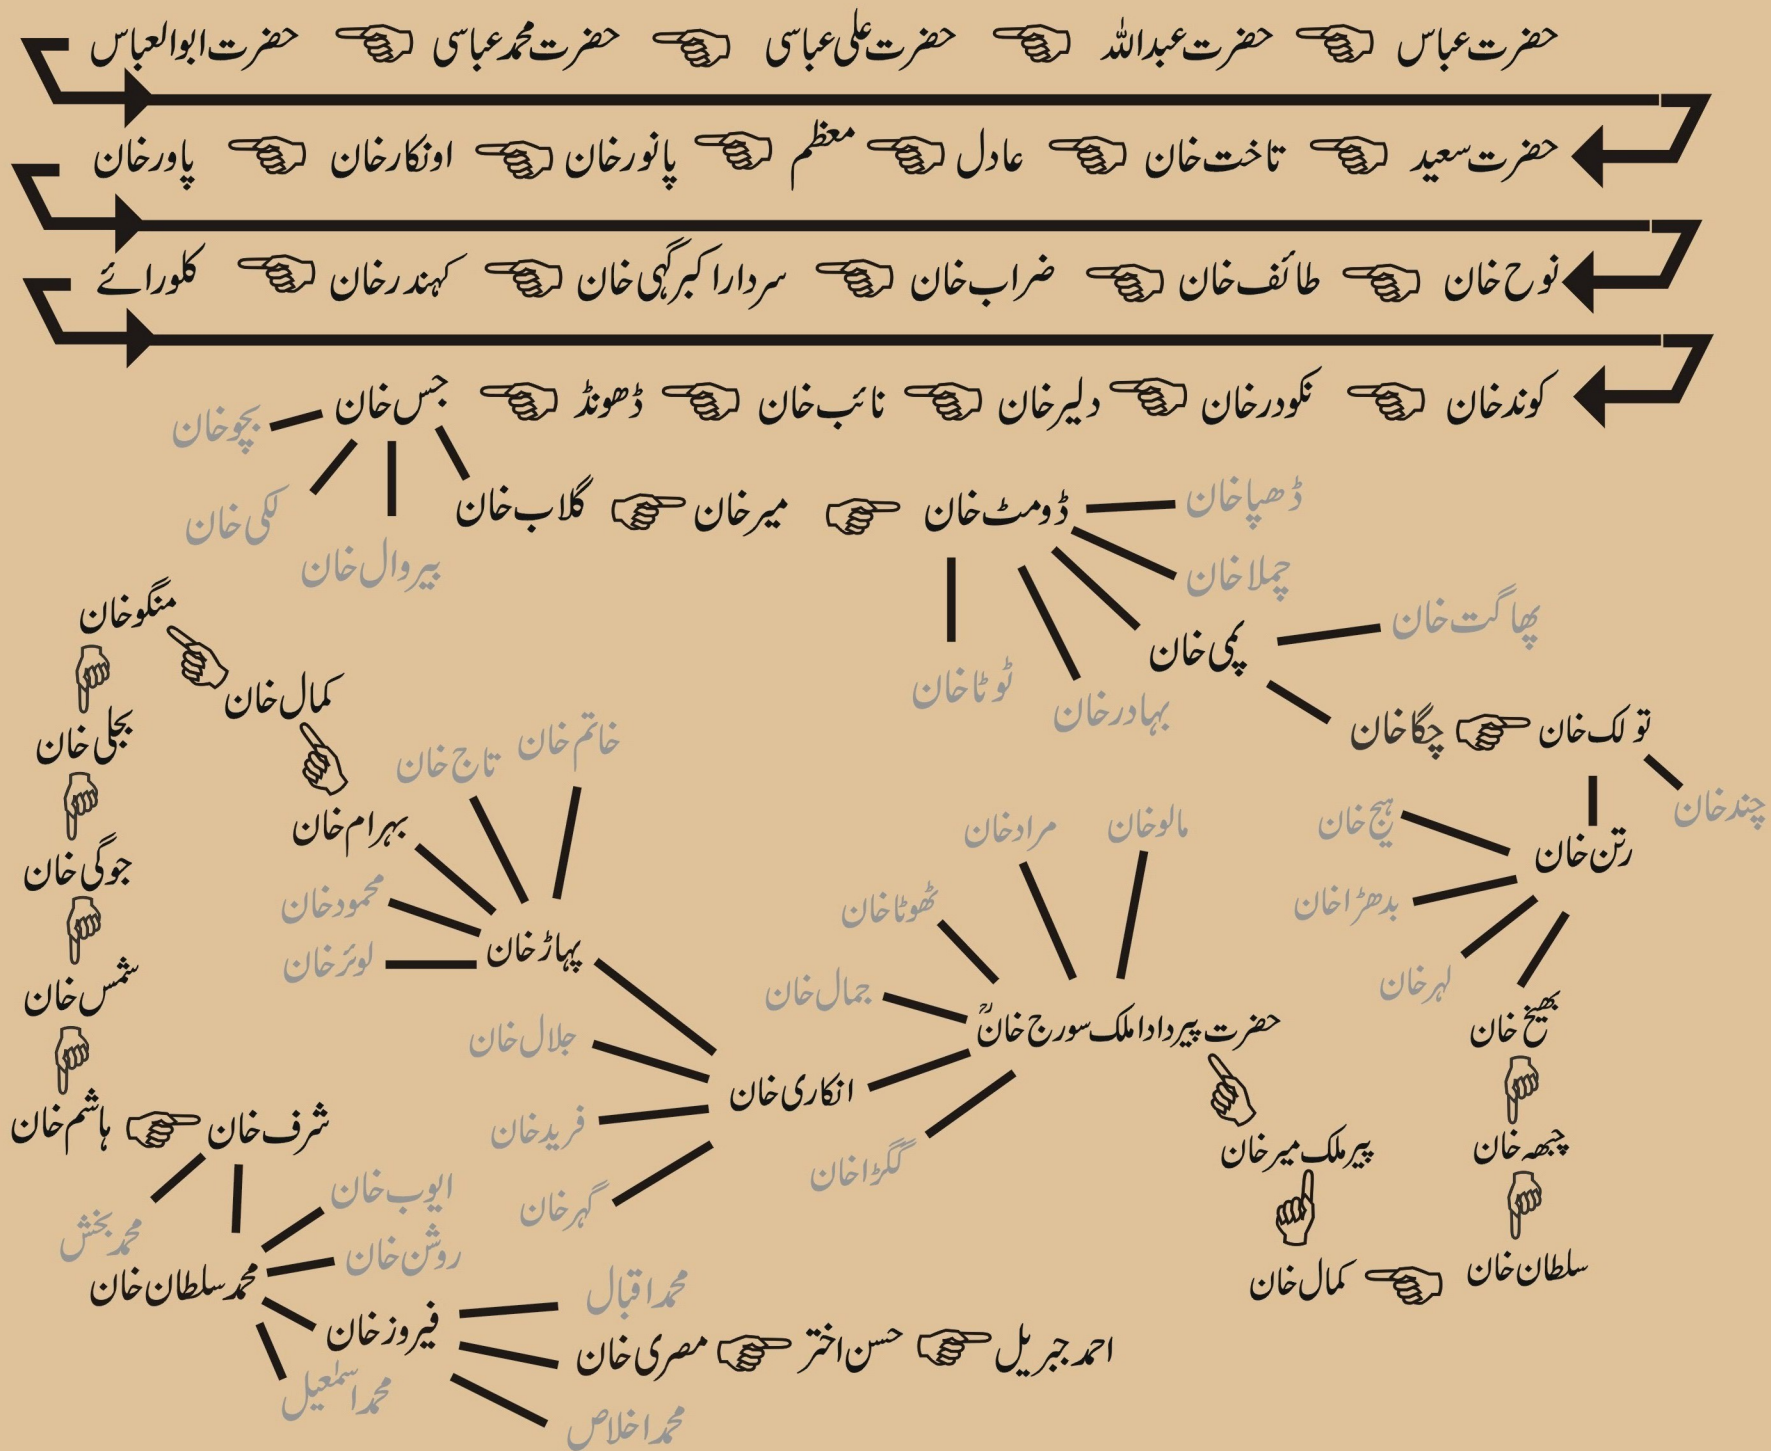 حضرت عباس حضرت عبداللہ حضرت علی عباسی حضرت محمد عباسی حضرت ابوالعباس
حضرت سعید تاخت خان عادل معظم پانور خان اونکار خان پاور خان
نوح خان طائف خان ضراب خان سردار اکبر گہی خان کہندر خان کلورائے
کوند خان نکودر خان دلیر خان نائب خان ڈھونڈ جس خان
بچو خان
لکی خان
بیروال خان
گلاب خان میر خان ڈومٹ خان
ڈھپا خان
چملا خان
پمی خان
بہادر خان
ٹوٹا خان
پھاگت خان
چگا خان تولک خان
چند خان
رتن خان
ہیج خان
بدھڑا خان
لہر خان
بھیخ خان
چبھہ خان
سلطان خان
کمال خان
پیر ملک میر خان
حضرت پیر دادا ملک سورج خانؒ
مالو خان
مراد خان
ٹھوٹا خان
جمال خان
گگڑا خان
انکاری خان
جلال خان
فرید خان
گہر خان
پہاڑ خان
خاتم خان
تاج خان
محمود خان
لوئر خان
بہرام خان
کمال خان
منگو خان
بجلی خان
جوگی خان
شمس خان
ہاشم خان شرف خان
محمد بخش
محمد سلطان خان
ایوب خان
روشن خان
فیروز خان
محمد اسمٰعیل
محمد اقبال
مصری خان حسن اختر احمد جبریل
محمد اخلاص